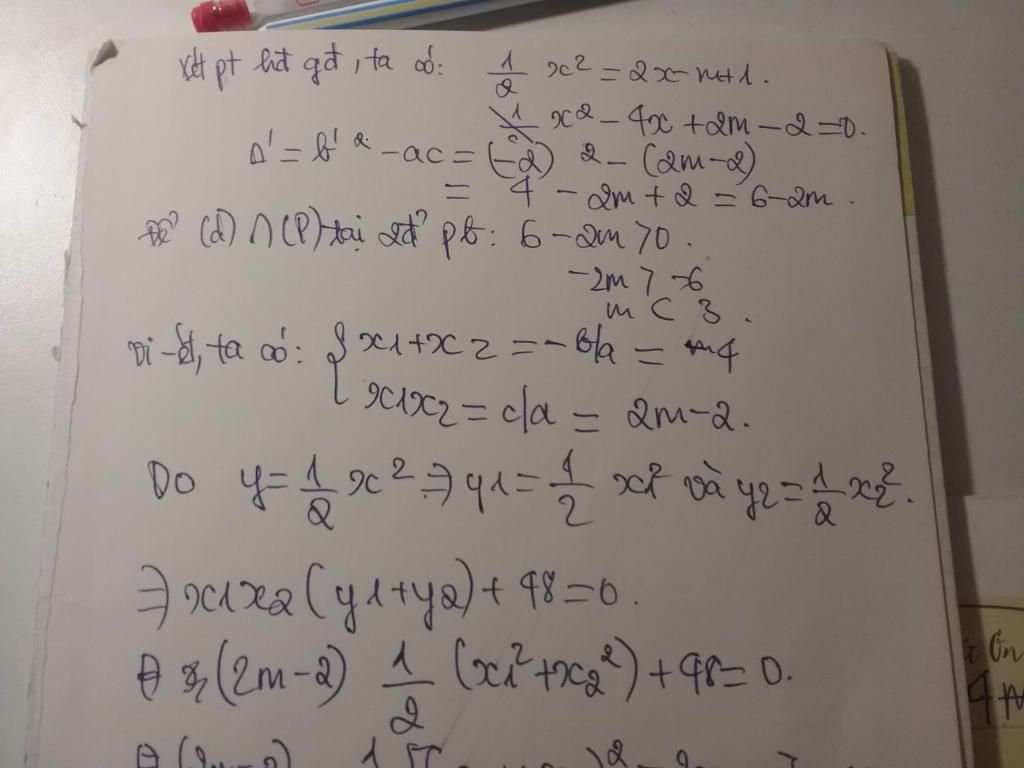 Xét pt hđ gđ, ta có: 1/2 x² = 2x - m + 1.
x² - 4x + 2m - 2 = 0.
Δ' = b'² - ac = (-2)² - (2m - 2)
= 4 - 2m + 2 = 6 - 2m.
Để (d) ∩ (P) tại 2đ' pb: 6 - 2m > 0.
-2m > -6
m < 3.
Vi-ét, ta có: { x1 + x2 = -b/a = 4
x1x2 = c/a = 2m - 2.
Do y = 1/2 x² ⇒ y1 = 1/2 x1² và y2 = 1/2 x2².
⇒ x1x2 (y1 + y2) + 48 = 0.
⇔ (2m - 2) 1/2 (x1² + x2²) + 48 = 0.